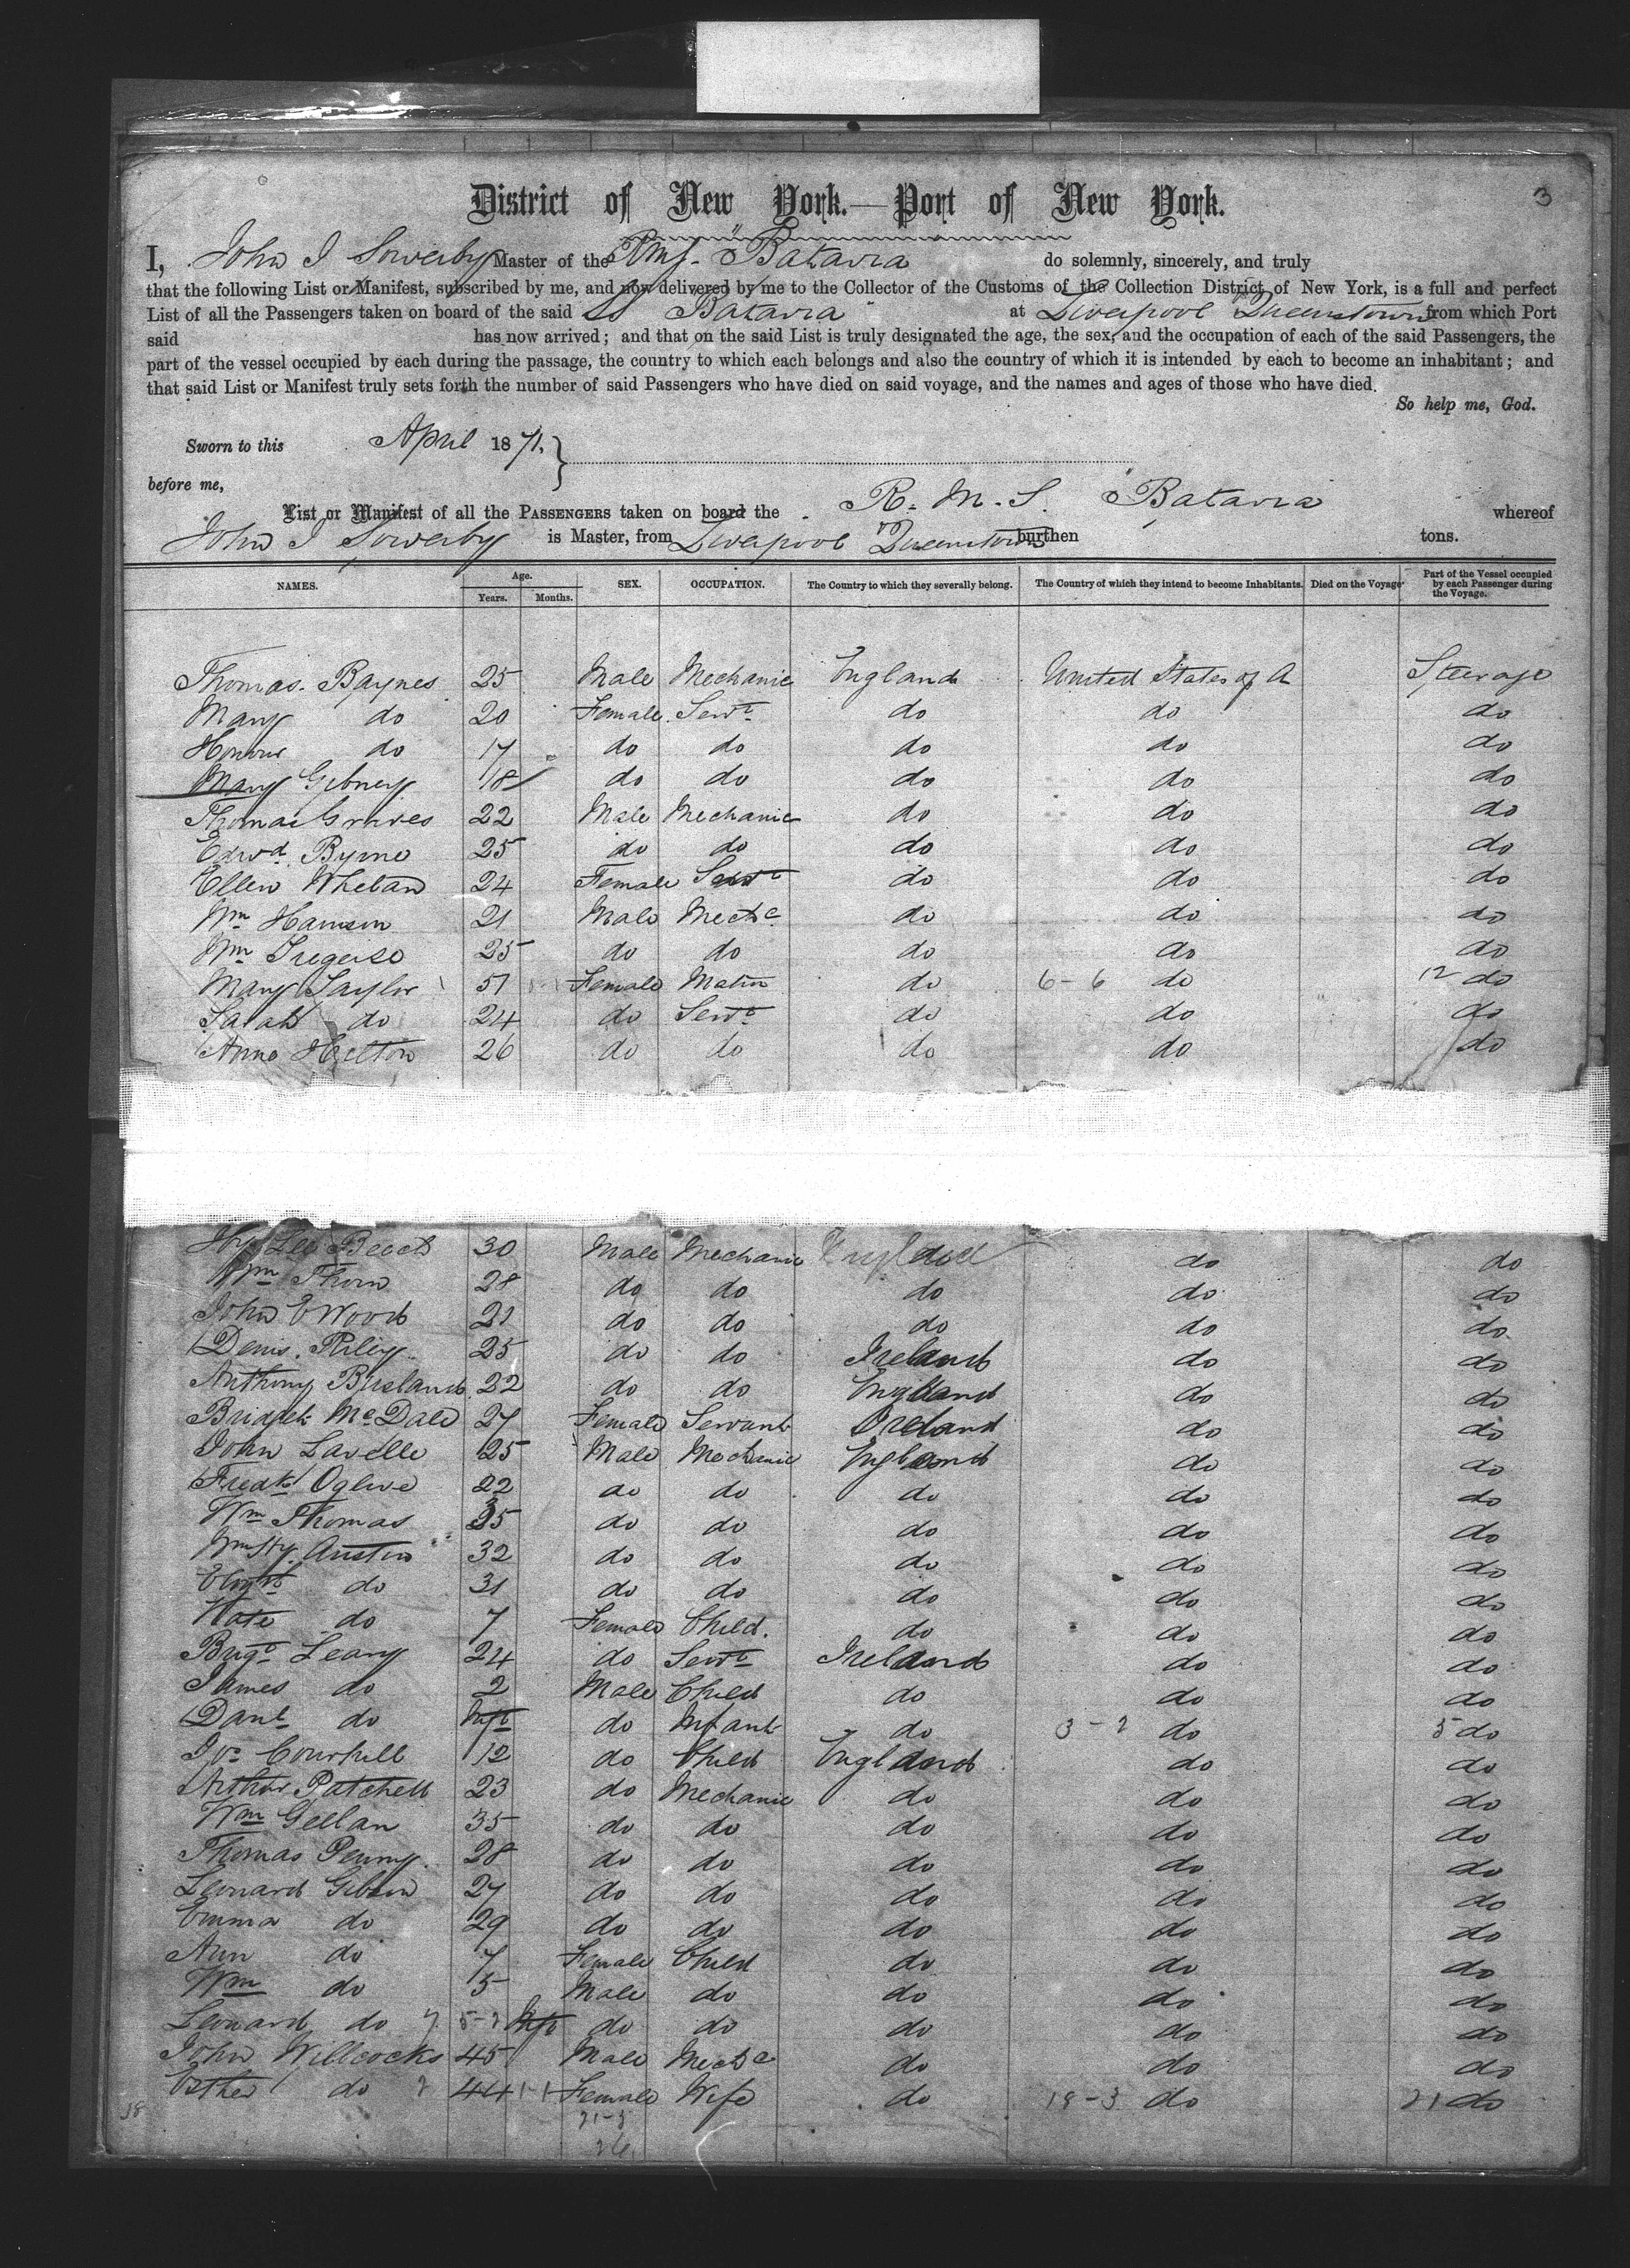 3
District of New York.—Port of New York.
I, John I Sowerby Master of the RMS. "Batavia do solemnly, sincerely, and truly
that the following List or Manifest, subscribed by me, and now delivered by me to the Collector of the Customs of the Collection District of New York, is a full and perfect
List of all the Passengers taken on board of the said SS Batavia at Liverpool Queenstown from which Port
said has now arrived; and that on the said List is truly designated the age, the sex, and the occupation of each of the said Passengers, the
part of the vessel occupied by each during the passage, the country to which each belongs and also the country of which it is intended by each to become an inhabitant; and
that said List or Manifest truly sets forth the number of said Passengers who have died on said voyage, and the names and ages of those who have died.
So help me, God.
Sworn to this April 1871.
before me,
List or Manifest of all the PASSENGERS taken on board the R. M. S. "Batavia whereof
John I Sowerby is Master, from Liverpool Queenstown burthen tons.
NAMES. Age. Years. Months. SEX. OCCUPATION. The Country to which they severally belong. The Country of which they intend to become Inhabitants. Died on the Voyage Part of the Vessel occupied by each Passenger during the Voyage.
Thomas Baynes 25 Male Mechanic England United States of A Steerage
Mary do 20 Female Servt do do do
Honour do 17 do do do do do
Mary Gibney 18 do do do do do
Thomas Graves 22 Male Mechanic do do do
Edwd Byrne 25 do do do do do
Ellen Whelan 24 Female Servt do do do
Wm 21 Male Mechc do do do
Wm 25 do do do do do
Mary Taylor 51 Female Matrn do 6-6 do 12 do
Sarah do 24 do Servt do do do
Anne Helton 26 do do do do do
Hy Lee Beech 30 Male Mechanic England do do
Wm Thorn 28 do do do do do
John E Wood 21 do do do do do
Denis Riley 25 do do Ireland do do
Anthony 22 do do England do do
Bridget McDale 27 Female Servant Ireland do do
John Lavelle 25 Male Mechanic England do do
Fredk Ogilvie 22 do do do do do
Wm Thomas 35 do do do do do
Wm Hy Austin 32 do do do do do
Elizth do 31 do do do do do
Kate do 7 Female Child. do do do
Brigt Leary 24 do Servt Ireland do do
James do 2 Male Child do do do
Danl do Inft do Infant do 3-2 do 5 do
Jos 12 do Child England do do
Arthur Patchell 23 do Mechanic do do do
Wm Gellan 35 do do do do do
Thomas Penny 28 do do do do do
Leonard Gibson 27 do do do do do
Emma do 29 do do do do do
Ann do 7 Female Child do do do
Wm do 5 Male do do do do
Leonard do 7 5-2 Inft do do do do do
John Willcocks 45 Male Mechc do do do
Esther do 2 44 1-1 Female Wife do 18-3 do 21 do
38 21-5
26